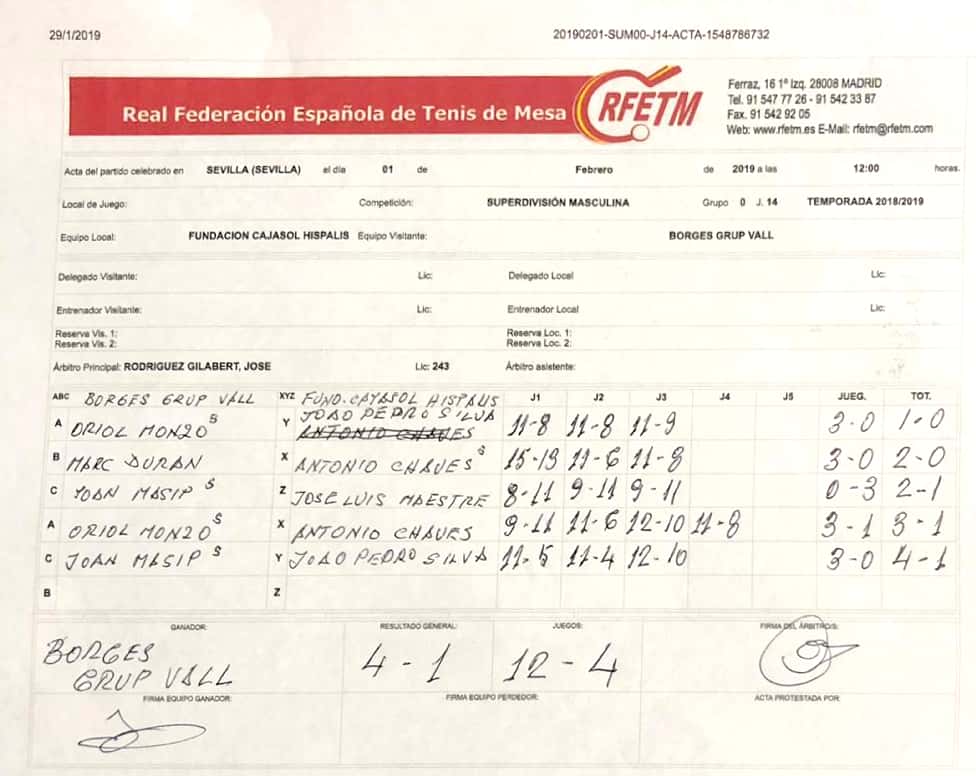 29/1/2019 20190201-SUM00-J14-ACTA-1548786732
Real Federación Española de Tenis de Mesa RFETM
Ferraz, 16 1º Izq. 28008 MADRID
Tel. 91 547 77 26 - 91 542 33 87
Fax. 91 542 92 05
Web: www.rfetm.es E-Mail: rfetm@rfetm.com
Acta del partido celebrado en SEVILLA (SEVILLA) el día 01 de Febrero de 2019 a las 12:00 horas.
Local de Juego: Competición: SUPERDIVISIÓN MASCULINA Grupo 0 J. 14 TEMPORADA 2018/2019
Equipo Local: FUNDACION CAJASOL HISPALIS Equipo Visitante: BORGES GRUP VALL
Delegado Visitante: Lic: Delegado Local Lic:
Entrenador Visitante: Lic: Entrenador Local Lic:
Reserva Vis. 1: Reserva Loc. 1:
Reserva Vis. 2: Reserva Loc. 2:
Árbitro Principal: RODRIGUEZ GILABERT, JOSE Lic: 243 Árbitro asistente:
ABC BORGES GRUP VALL XYZ FUND. CAJASOL HISPALIS J1 J2 J3 J4 J5 JUEG. TOT.
A ORIOL MONZO S Y JOAO PEDRO SILVA 11-8 11-8 11-9 3-0 1-0
ANTONIO CHAVES
B MARC DURAN X ANTONIO CHAVES S 15-13 11-6 11-8 3-0 2-0
C JOAN MASIP S Z JOSE LUIS MAESTRE 8-11 9-11 9-11 0-3 2-1
A ORIOL MONZO S X ANTONIO CHAVES 9-11 11-6 12-10 11-8 3-1 3-1
C JOAN MASIP S Y JOAO PEDRO SILVA 11-5 11-4 12-10 3-0 4-1
B Z
GANADOR: RESULTADO GENERAL: JUEGOS: FIRMA DEL ÁRBITRO/S:
BORGES
GRUP VALL 4-1 12-4
FIRMA EQUIPO GANADOR: FIRMA EQUIPO PERDEDOR: ACTA PROTESTADA POR: